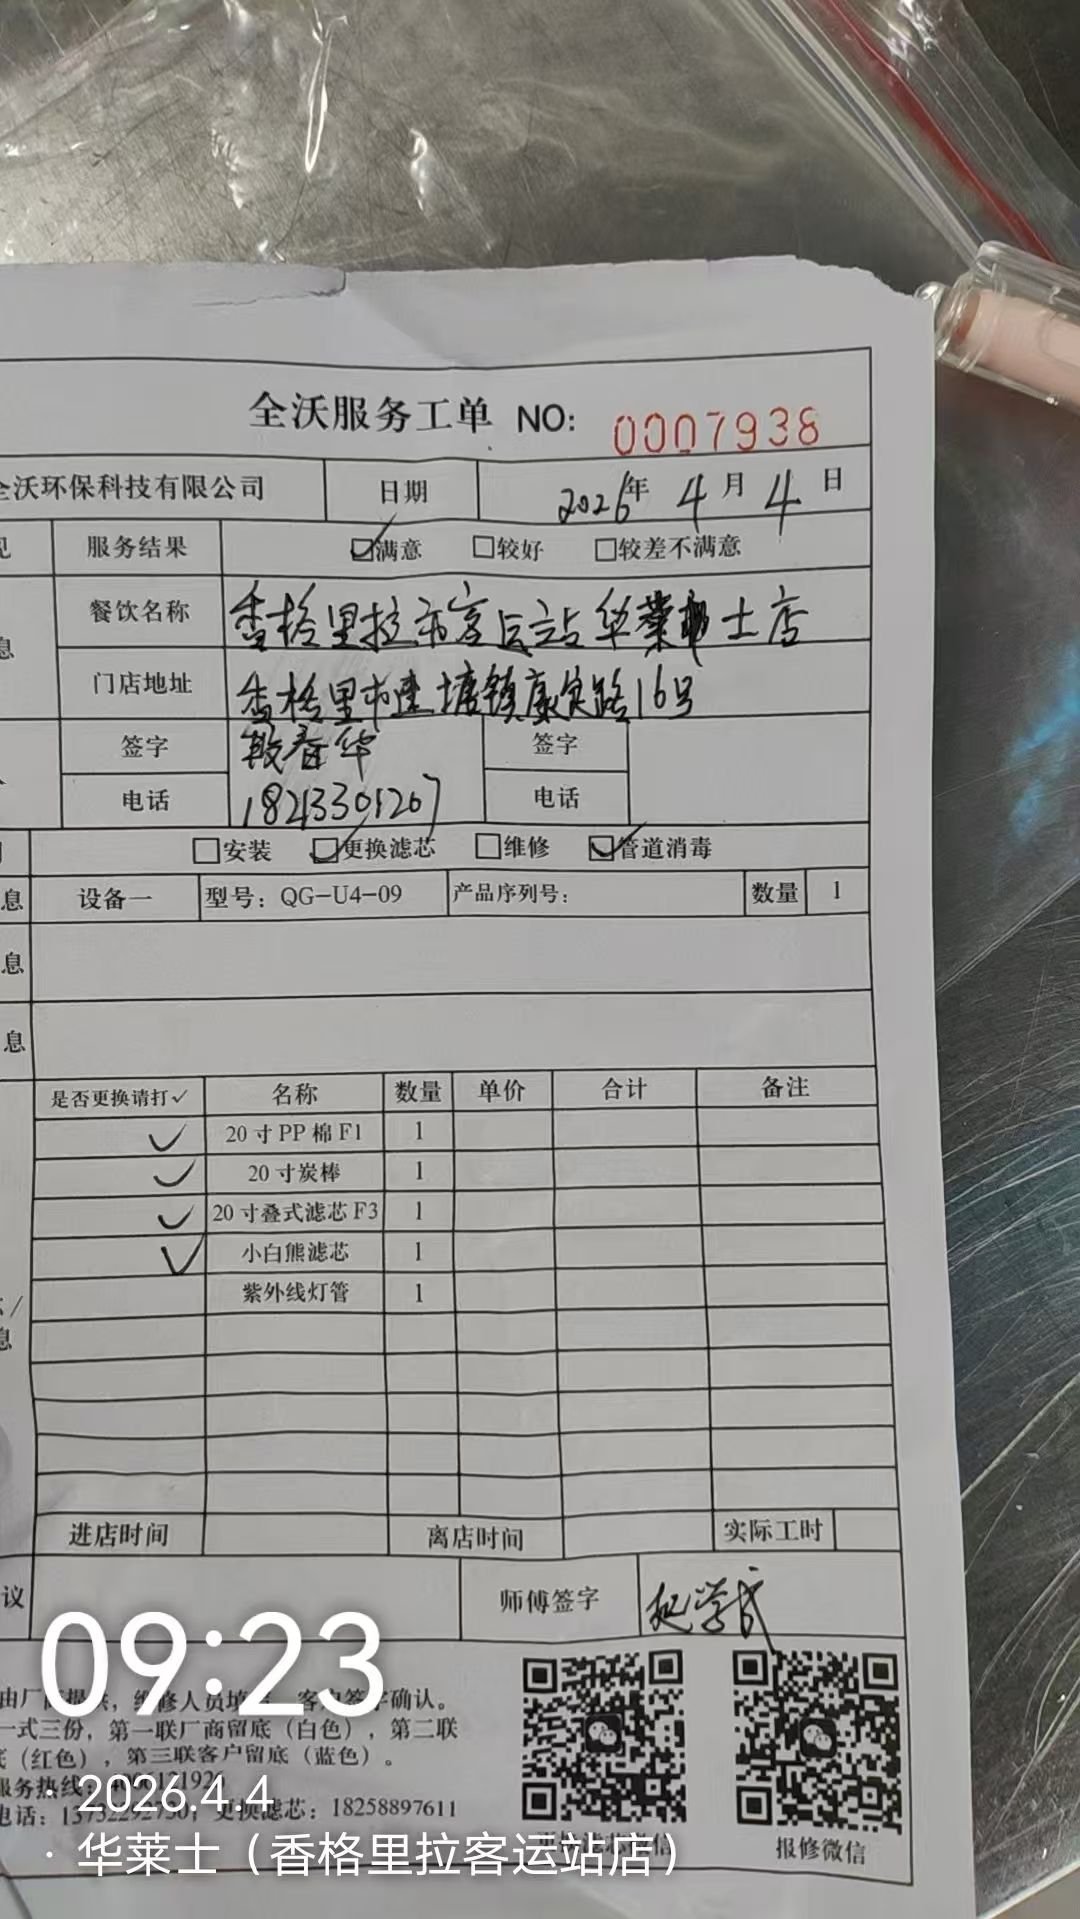 全沃服务工单 NO: 0007938
全沃环保科技有限公司 日期 2026年 4月 4日
见 服务结果 ☑满意 □较好 □较差不满意
餐饮名称 香格里拉市客运站华莱士店
息
门店地址 香格里市建塘镇康定路16号
签字 段春华 签字
电话 18213301267 电话
□安装 ☑更换滤芯 □维修 ☑管道消毒
息 设备一 型号：QG-U4-09 产品序列号： 数量 1
息
息
是否更换请打✓ 名称 数量 单价 合计 备注
✓ 20寸PP棉F1 1
✓ 20寸炭棒 1
✓ 20寸叠式滤芯F3 1
✓ 小白熊滤芯 1
紫外线灯管 1
/
息
进店时间 离店时间 实际工时
议 师傅签字
09:23
由厂商提供，维修人员填，客户签字确认。
一式三份，第一联厂商留底（白色），第二联
底（红色），第三联客户留底（蓝色）。
服务热线：
2026.4.4
电话： 更换滤芯：18258897611
报修微信
· 华莱士（香格里拉客运站店）